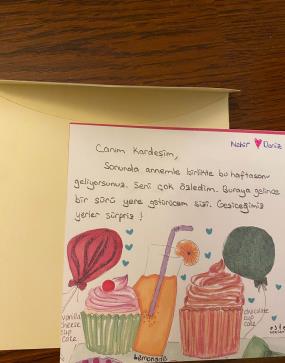 Nehir ♥ Deniz
Canım Kardeşim,
Sonunda annemle birlikte bu haftasonu
geliyorsunuz. Seni çok özledim. Buraya gelince
bir sürü yere götürücem sizi. Gezicegimiz
yerler sürpriz !
vanilla
cheese
cup
cake
lemonade
chocolate
cup
cake